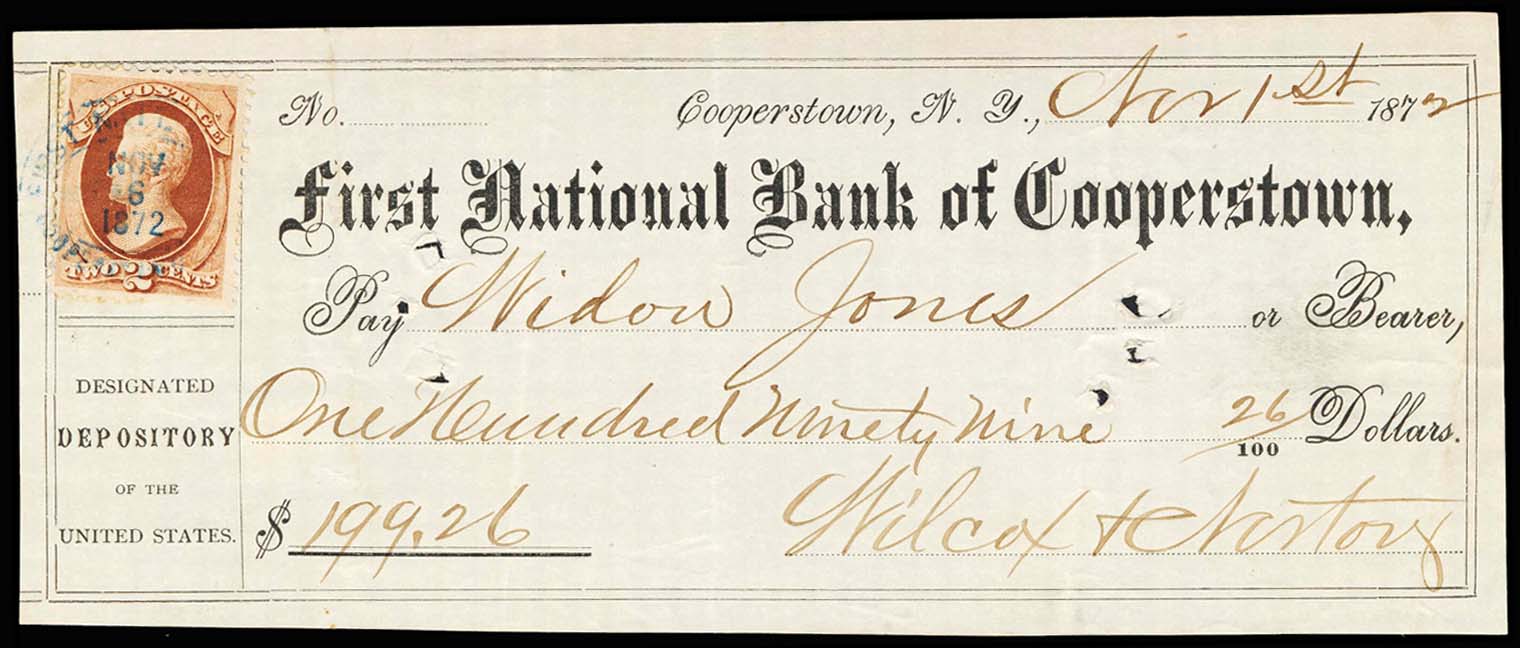 U.S. POSTAGE
FIRST NAT'L
NOV
6
1872
TWO 2 CENTS
No. Cooperstown, N. Y., Nov 1st 1872
First National Bank of Cooperstown,
Pay Widow Jones or Bearer,
One Hundred Ninety Nine 26/100 Dollars.
$ 199.26
Wilcox &
DESIGNATED
DEPOSITORY
OF THE
UNITED STATES.